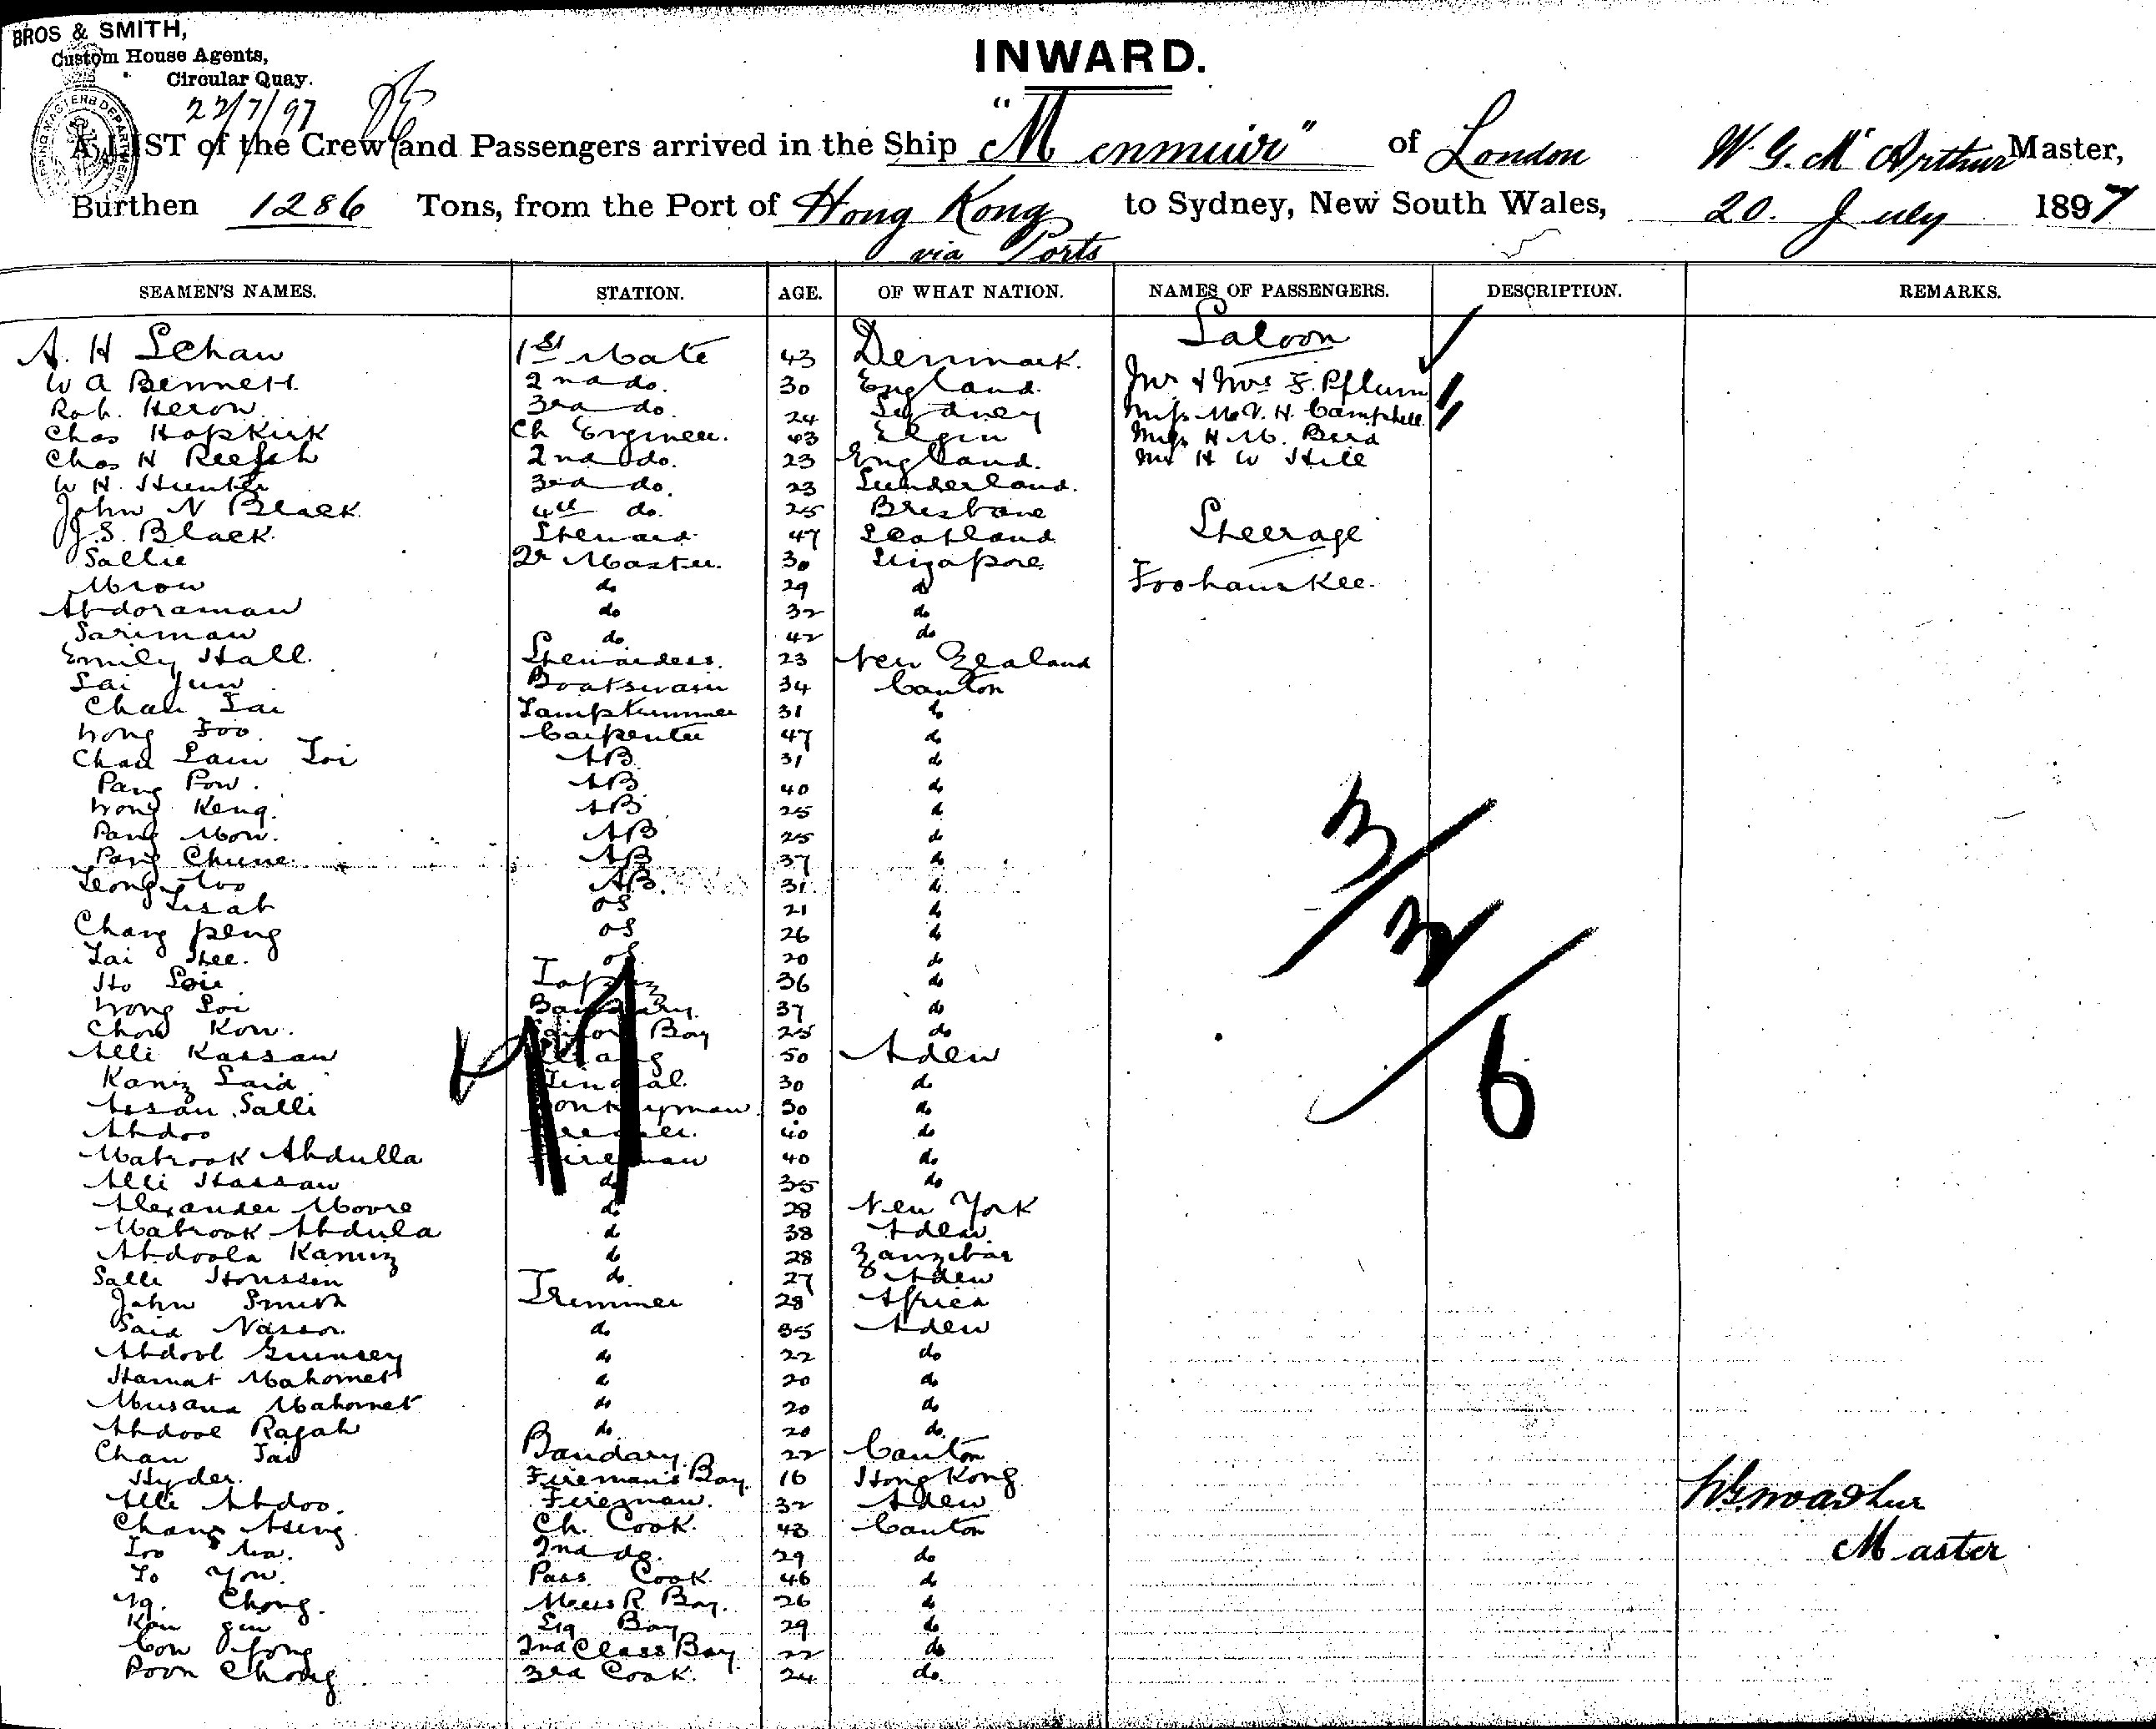 BROS & SMITH,
Custom House Agents,
Circular Quay.
22/7/97
INWARD.
A LIST of the Crew and Passengers arrived in the Ship "Menmuir" of London W. G. McArthur Master,
Burthen 1286 Tons, from the Port of Hong Kong to Sydney, New South Wales, 20. July 1897
via Ports
SEAMEN'S NAMES. STATION. AGE. OF WHAT NATION. NAMES OF PASSENGERS. DESCRIPTION. REMARKS.
Saloon
A. H Schaw 1st Mate 43 Denmark.
W A Bennett. 2nd do. 30 England. Mr & Mrs F. Pflum
Rob. Heron. 3rd do. 24 Sydney Miss M. V. H. Campbell
Chas Hopkirk Ch Engineer. 43 Elgin Miss H M. Bird
Chas H 2nd do. 23 England. Mr H W Hill
W H. Hunter 3rd do. 23 Sunderland.
John N Black 4th do. 25 Brisbane
J. S. Black. Steward 47 Scotland Steerage
Sallie Qr Master. 30 Singapore
Mrow do 29 do Foohaunkee.
Abdoraman do 32 do
Sariman do 42 do
Emily Hall. Stewardess. 23 New Zealand
Lai Jun Boatswain 34 Canton
Chan Tai Lamptrimmer 31 do
Wong Foo. Carpenter 47 do
Chan Lam Loi AB. 31 do
Pang Pow. AB 40 do
Wong Keng. AB 25 do
Pang Mow. AB 25 do
Pang Chune. AB 37 do
Leong Moo AB. 31 do
Lisab OS 21 do
Chang peng OS 26 do
Lai Hee. OS 20 do
Ho Loie 36 do
Wong Loi Bandary. 37 do
Chow Kow. Sailors Boy 25 do
Alli Kassaw Serang 50 Aden
Kaniz Said Tindal. 30 do
Assan Salli Donkeyman. 30 do
Abdoo 40 do
Mabrook Abdulla Fireman 40 do
Alli Hassan do 35 do
Alexander Moore do 28 New York
Mabrook Abdula do 38 Aden
Abdoola Kamiz do 28 Zanzibar
Salli Houssen do. 27 Aden
John Smith Trimmer 28 Africa
Said Nassor. do 35 Aden
Abdool Guinsey do 22 do
Hamat Mahomet do 20 do
Musana Mahomet do 20 do
Abdool Rajab do. 20 do.
Chan Tai Bandary. 22 Canton
Hyder. Fireman's Boy. 16 Hong Kong
Alli Abdoo. Fireman. 32 Aden
Chang Aseng. Ch. Cook. 43 Canton
Loo Ma. 2nd do. 29 do
Lo Yow. Pass. Cook. 46 do
Ng. Chong. Mess R. Boy. 26 do
Kan gin Eng Boy 29 do
Cow fong 2nd Class Boy. 22 do
Poon Chong 3rd Cook. 24 do.
3/3/6
WGMcArthur
Master